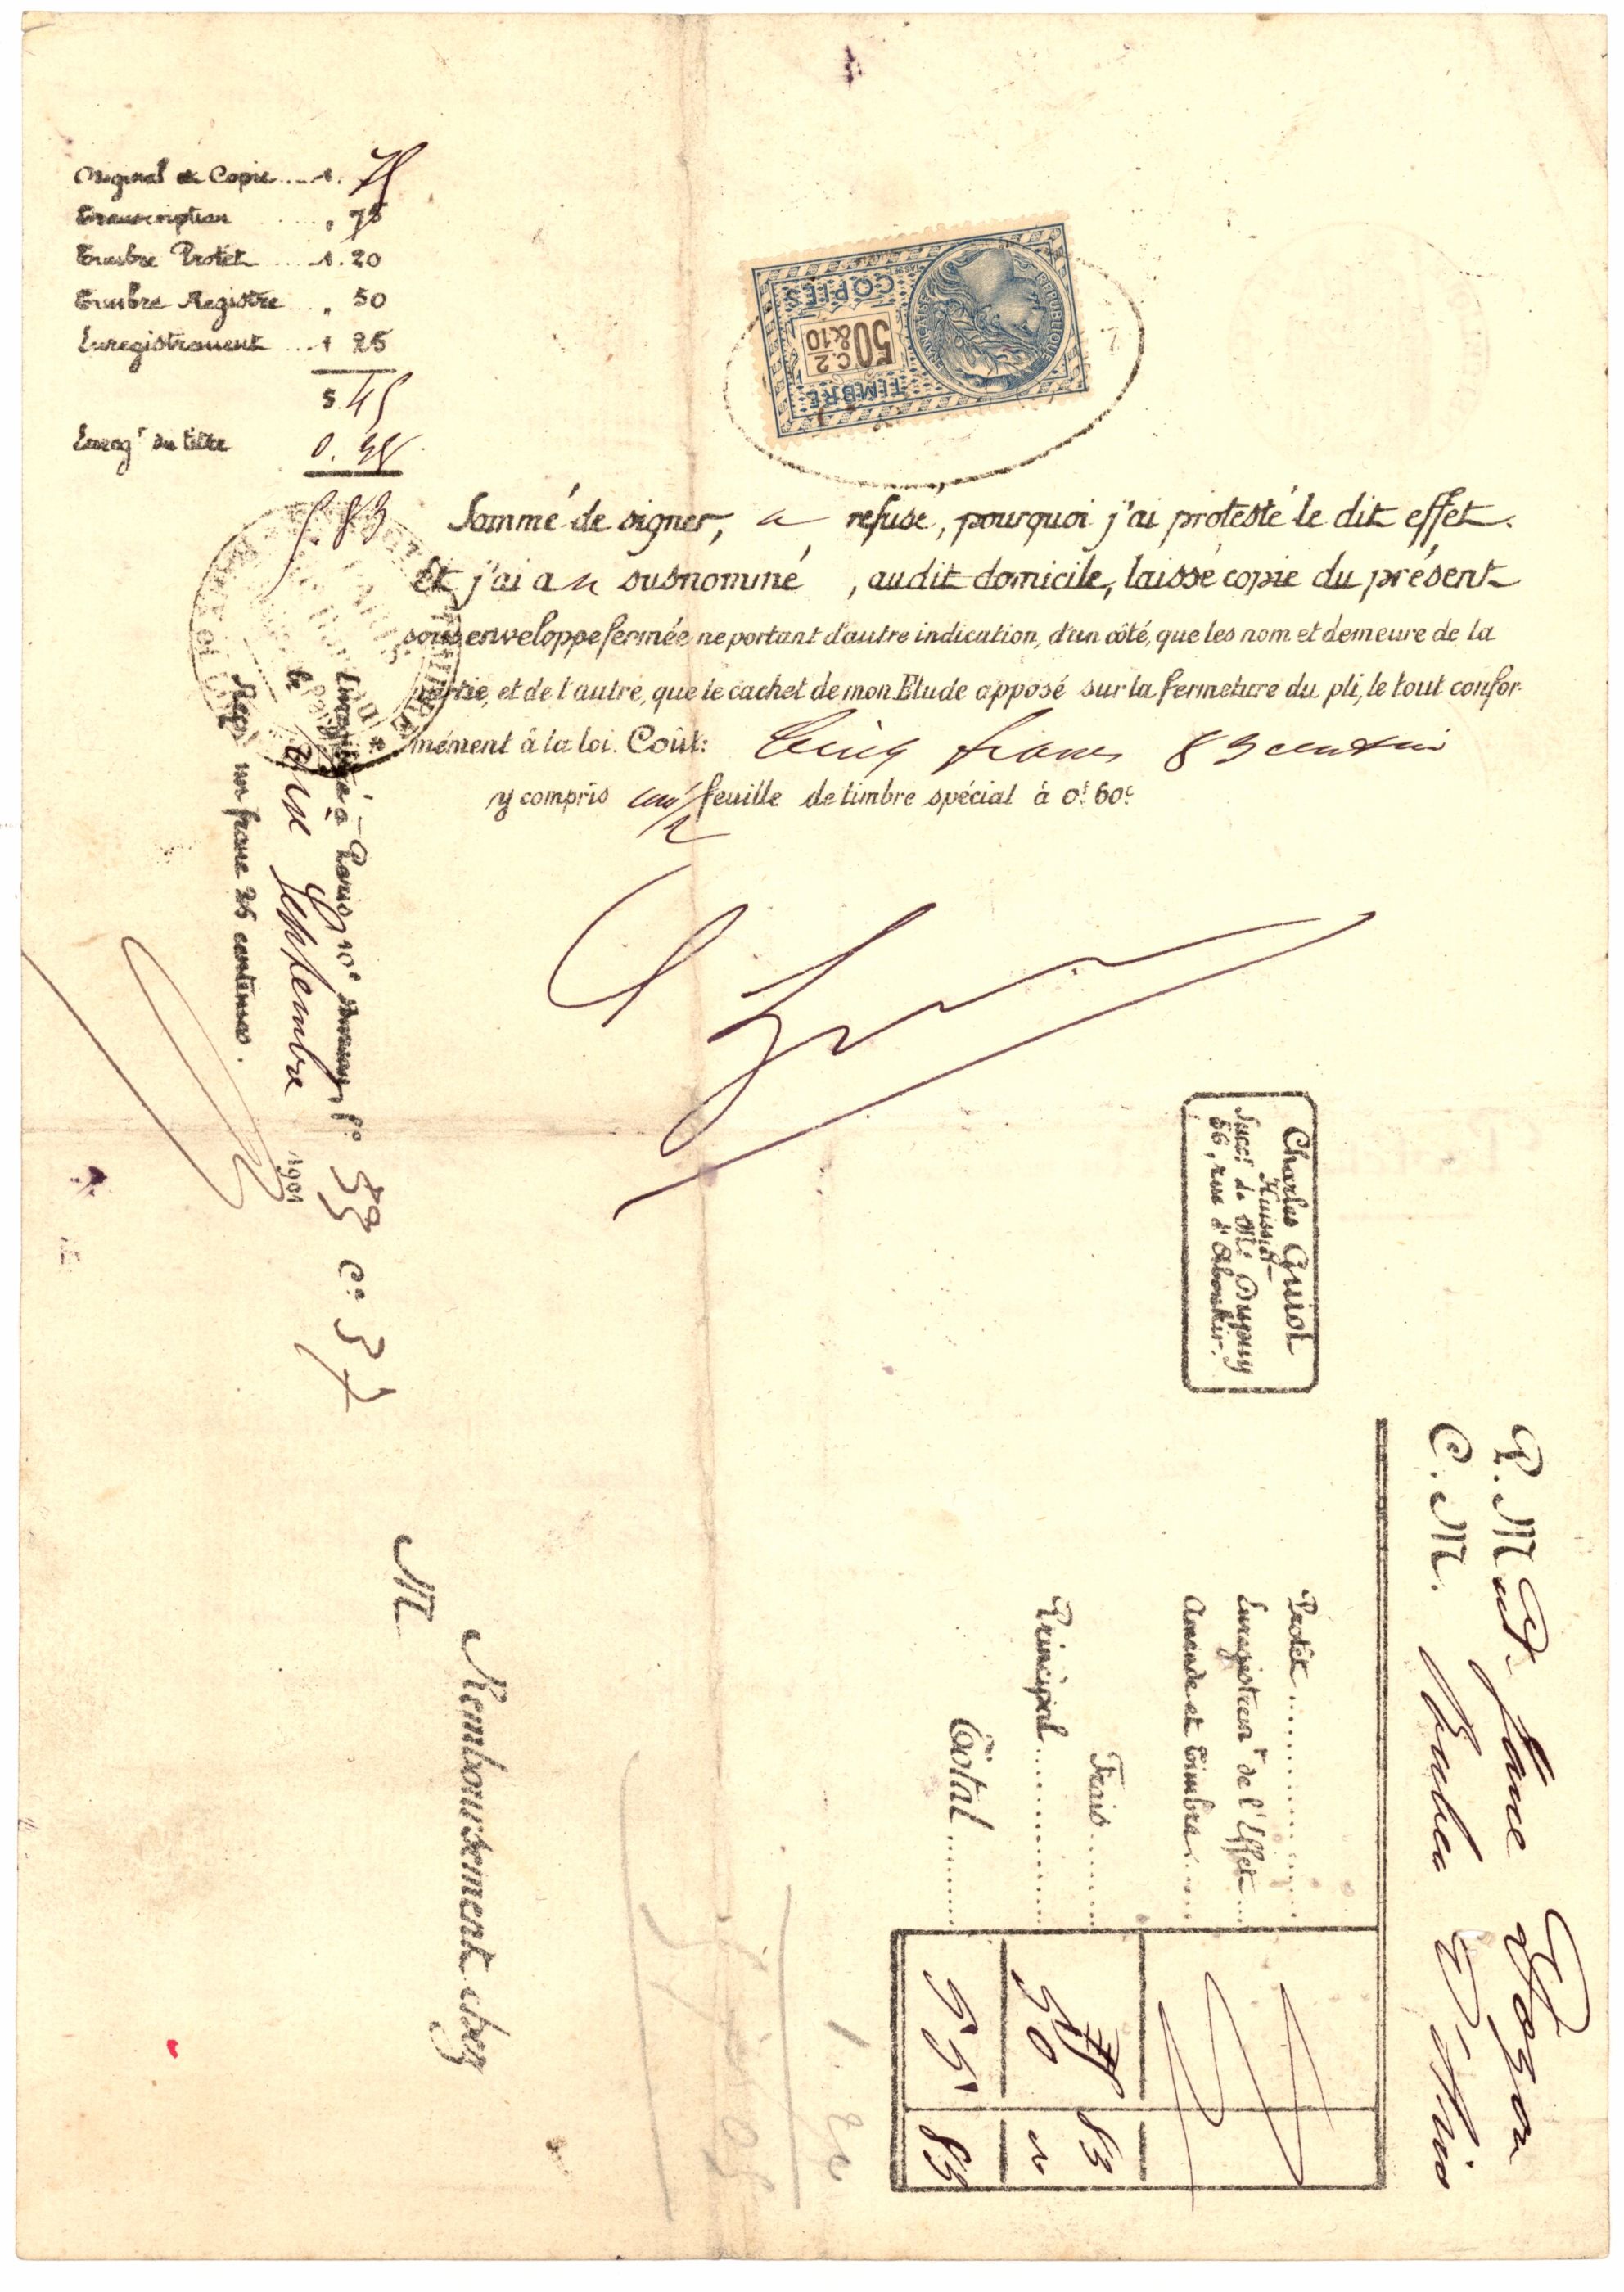 Original et Copie .... 1. 75
Transcription ..... „ 75
Timbre Protêt .... 1. 20
Timbre Registre ... „ 50
Enregistrement ... 1 25
5 45
Enreg^t du titre 0. 38
5. 83
RÉPUBLIQUE
FRANÇAISE
COPIES
50 C. 2
&10
TIMBRE
Sommé de signer, a refusé, pourquoi j'ai protesté le dit effet.
Et j'ai au susnommé , audit domicile, laissé copie du présent
sous enveloppe fermée ne portant d'autre indication, d'un côté, que les nom et demeure de la
partie, et de l'autre, que le cachet de mon Etude apposé sur la fermeture du pli, le tout confor-
mément à la loi. Coût: Cinq francs 83 centimes
y compris une 1/2 feuille de timbre spécial à 0f 60c
Enregistré à Paris, 10e f° 53 c^e 37
le Septembre 1901
Reçu un franc 25 centimes.
Charles Guiot
Huissier
Succr de Me Dupuy
56, rue d'Aboukir.
P. M
C. M.
Protêt ..........
Enregistremt de l'Effet ...
Amende et Timbres ....
Frais ....... 5 83
Principal .......... 50 "
Total ....... 55 83
Remboursement chez
M